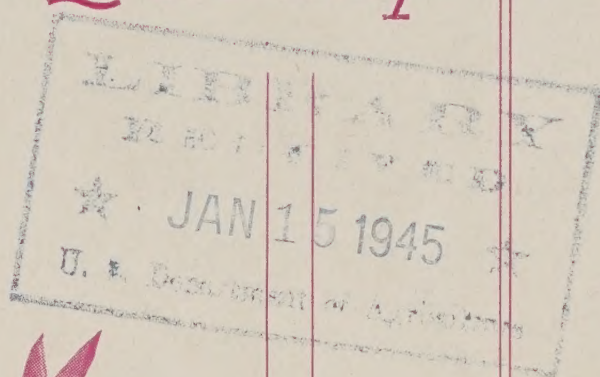 LIBRARY
RECEIVED
★ JAN 15 1945 ★
U. S. Department of Agriculture